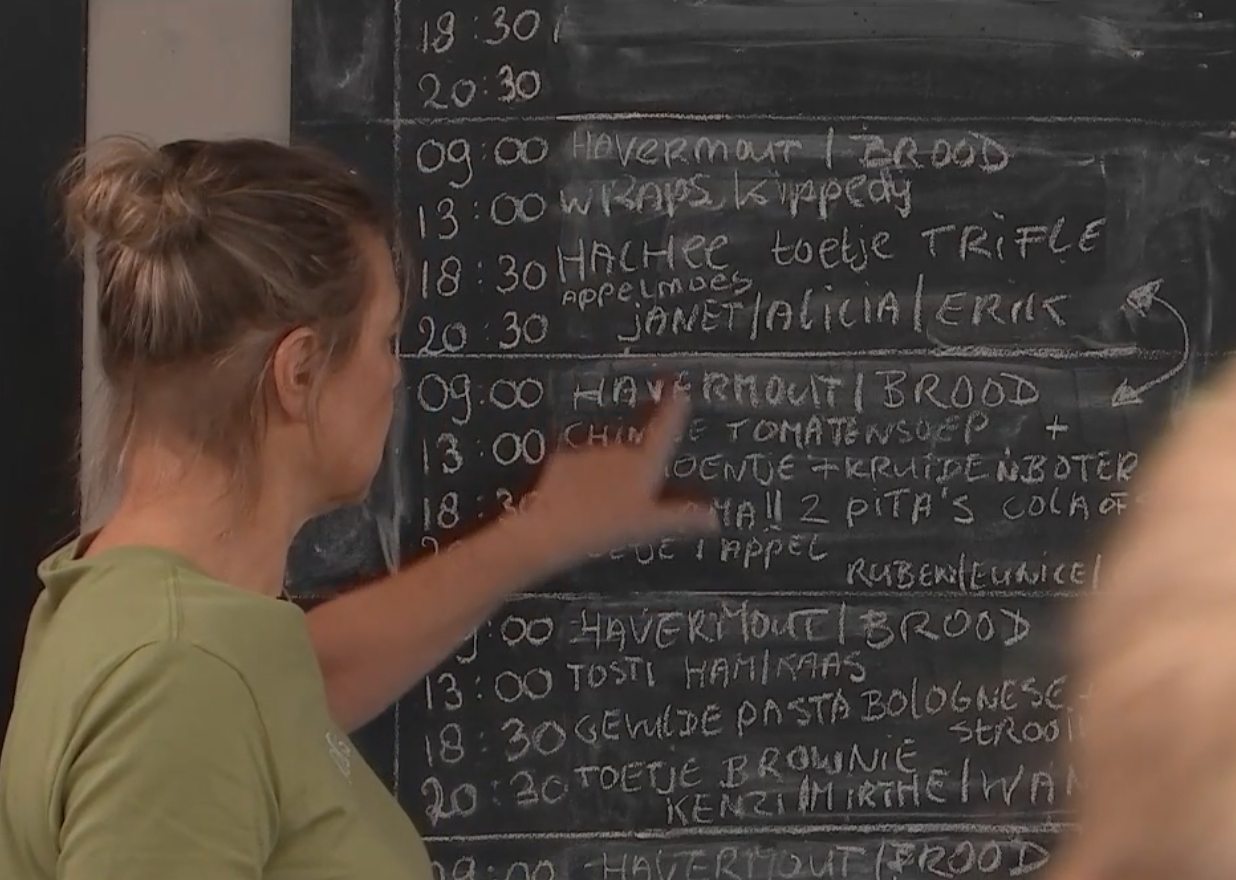 18:30
20:30
09:00 HAVERMOUT / BROOD
13:00 WRAPS kippedy
18:30 HACHEE toetje TRIFLE
APPELMOES
20:30 JANET/ALICIA/ERIK
09:00 HAVERMOUT/BROOD
13:00 TOMATENSOEP +
+KRUIDENBOTER
18:30 2 PITA'S COLA OF
1 APPEL
RUBEN/EUNICE/
:00 HAVERMOUT/BROOD
13:00 TOSTI HAM/KAAS
18:30 GEVULDE PASTA BOLOGNESE
20:30 TOETJE BROWNIE
KENZI/MIRTHE/
09:00 HAVERMOUT/BROOD